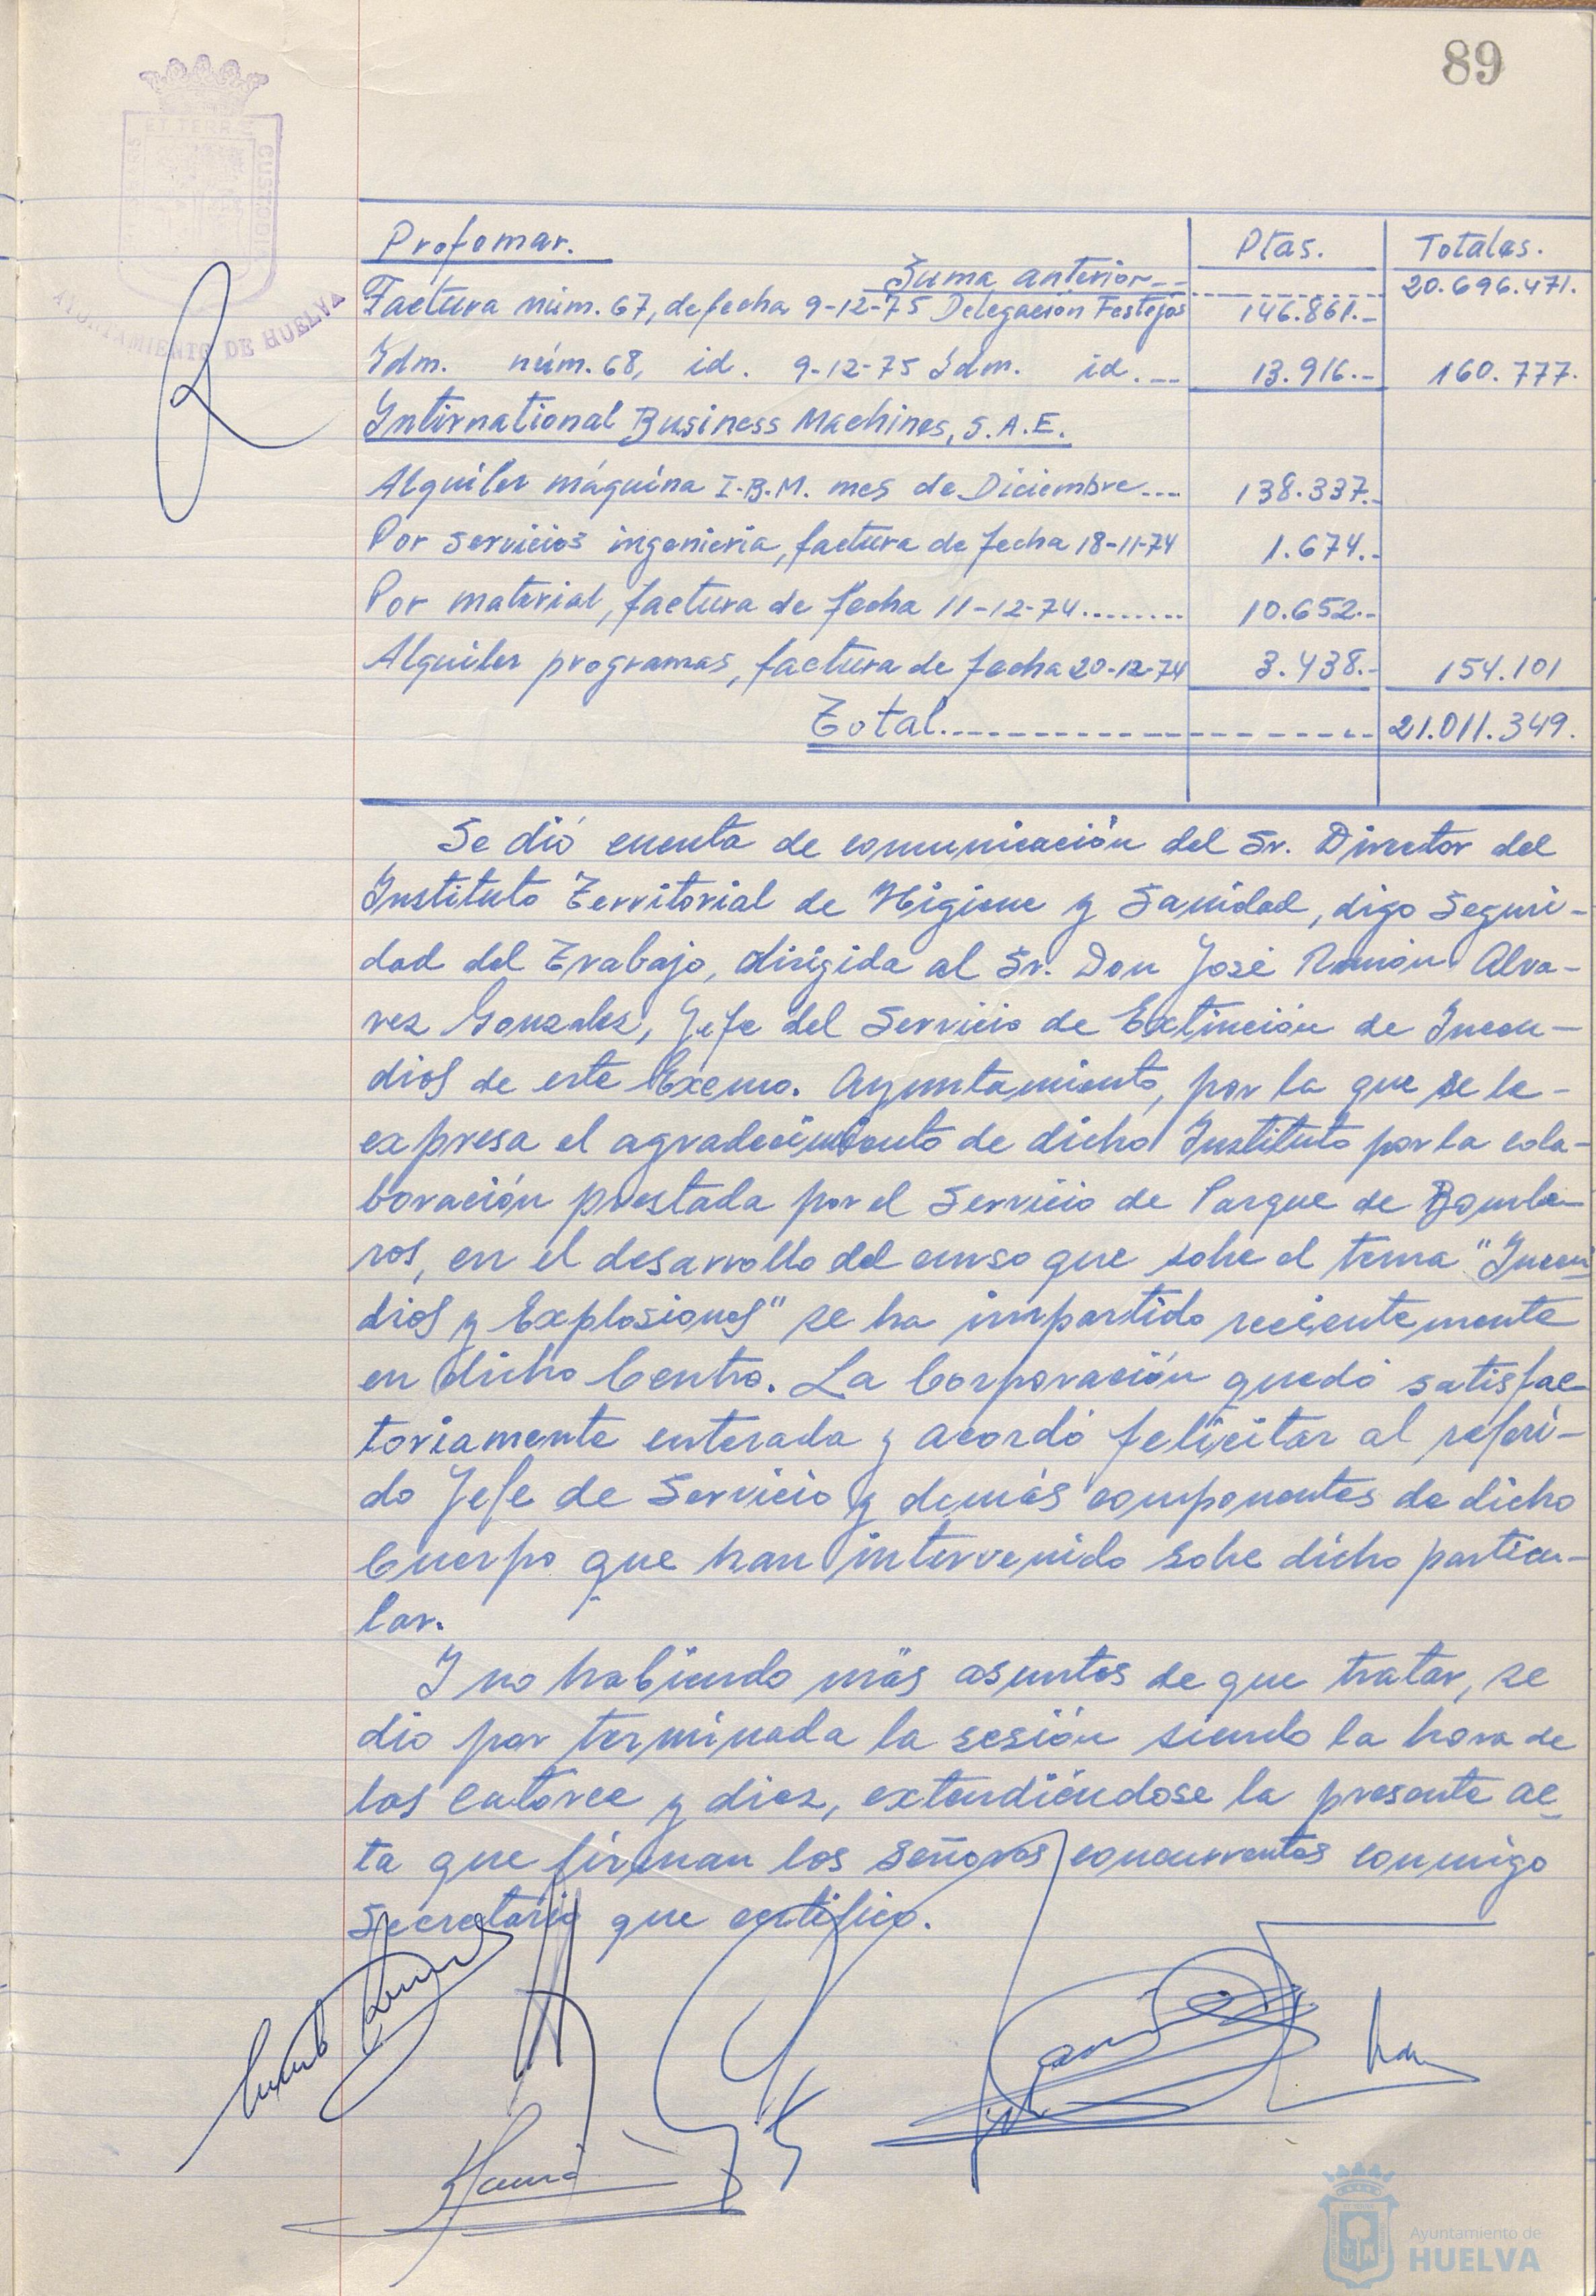 89
ET TERR
CUSTODIT
AYUNTAMIENTO DE HUELVA
Profomar. Ptas. Totales.
Suma anterior-- 20.696.471.
Factura núm. 67, de fecha 9-12-75 Delegación Festejos 146.861.-
Idm. núm. 68, id. 9-12-75 Idm. id. -- 13.916.- 160.777.
International Business Machines, S.A.E.
Alquiler máquina I.B.M. mes de Diciembre.... 138.337.-
Por servicios ingenieria, factura de fecha 18-11-74 1.674.-
Por material, factura de fecha 11-12-74......... 10.652.-
Alquiler programas, factura de fecha 20-12-74 3.438.- 154.101
Total.------------------ 21.011.349.
Se dió cuenta de comunicación del Sr. Director del
Instituto Territorial de Higiene y Sanidad, digo Seguri-
dad del Trabajo, dirigida al Sr. Don José Ramón Alva-
rez Gonzalez, Jefe del Servicio de Extinción de Incen-
dios de este Excmo. Ayuntamiento, por la que se le-
expresa el agradecimiento de dicho Instituto por la cola-
boración prestada por el Servicio de Parque de Bombe-
ros, en el desarrollo del curso que sobre el tema "Incen-
dios y Explosiones" se ha impartido recientemente
en dicho Centro. La Corporación quedó satisfac-
toriamente enterada y acordó felicitar al referi-
do Jefe de Servicio y demás componentes de dicho
Cuerpo que han intervenido sobre dicho particu-
lar.
Y no habiendo más asuntos de que tratar, se
dio por terminada la sesión siendo la hora de
las catorce y diez, extendiéndose la presente ac-
ta que firman los señores concurrentes conmigo
Secretario que certifico.
Ayuntamiento de
HUELVA